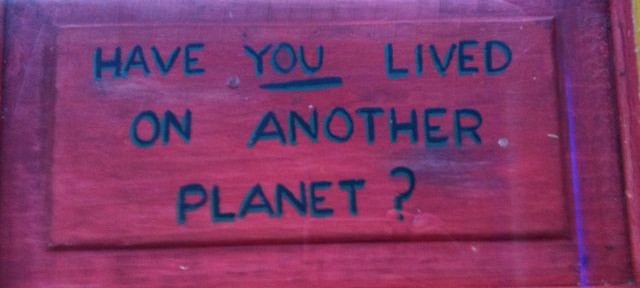 HAVE YOU LIVED
ON ANOTHER
PLANET?